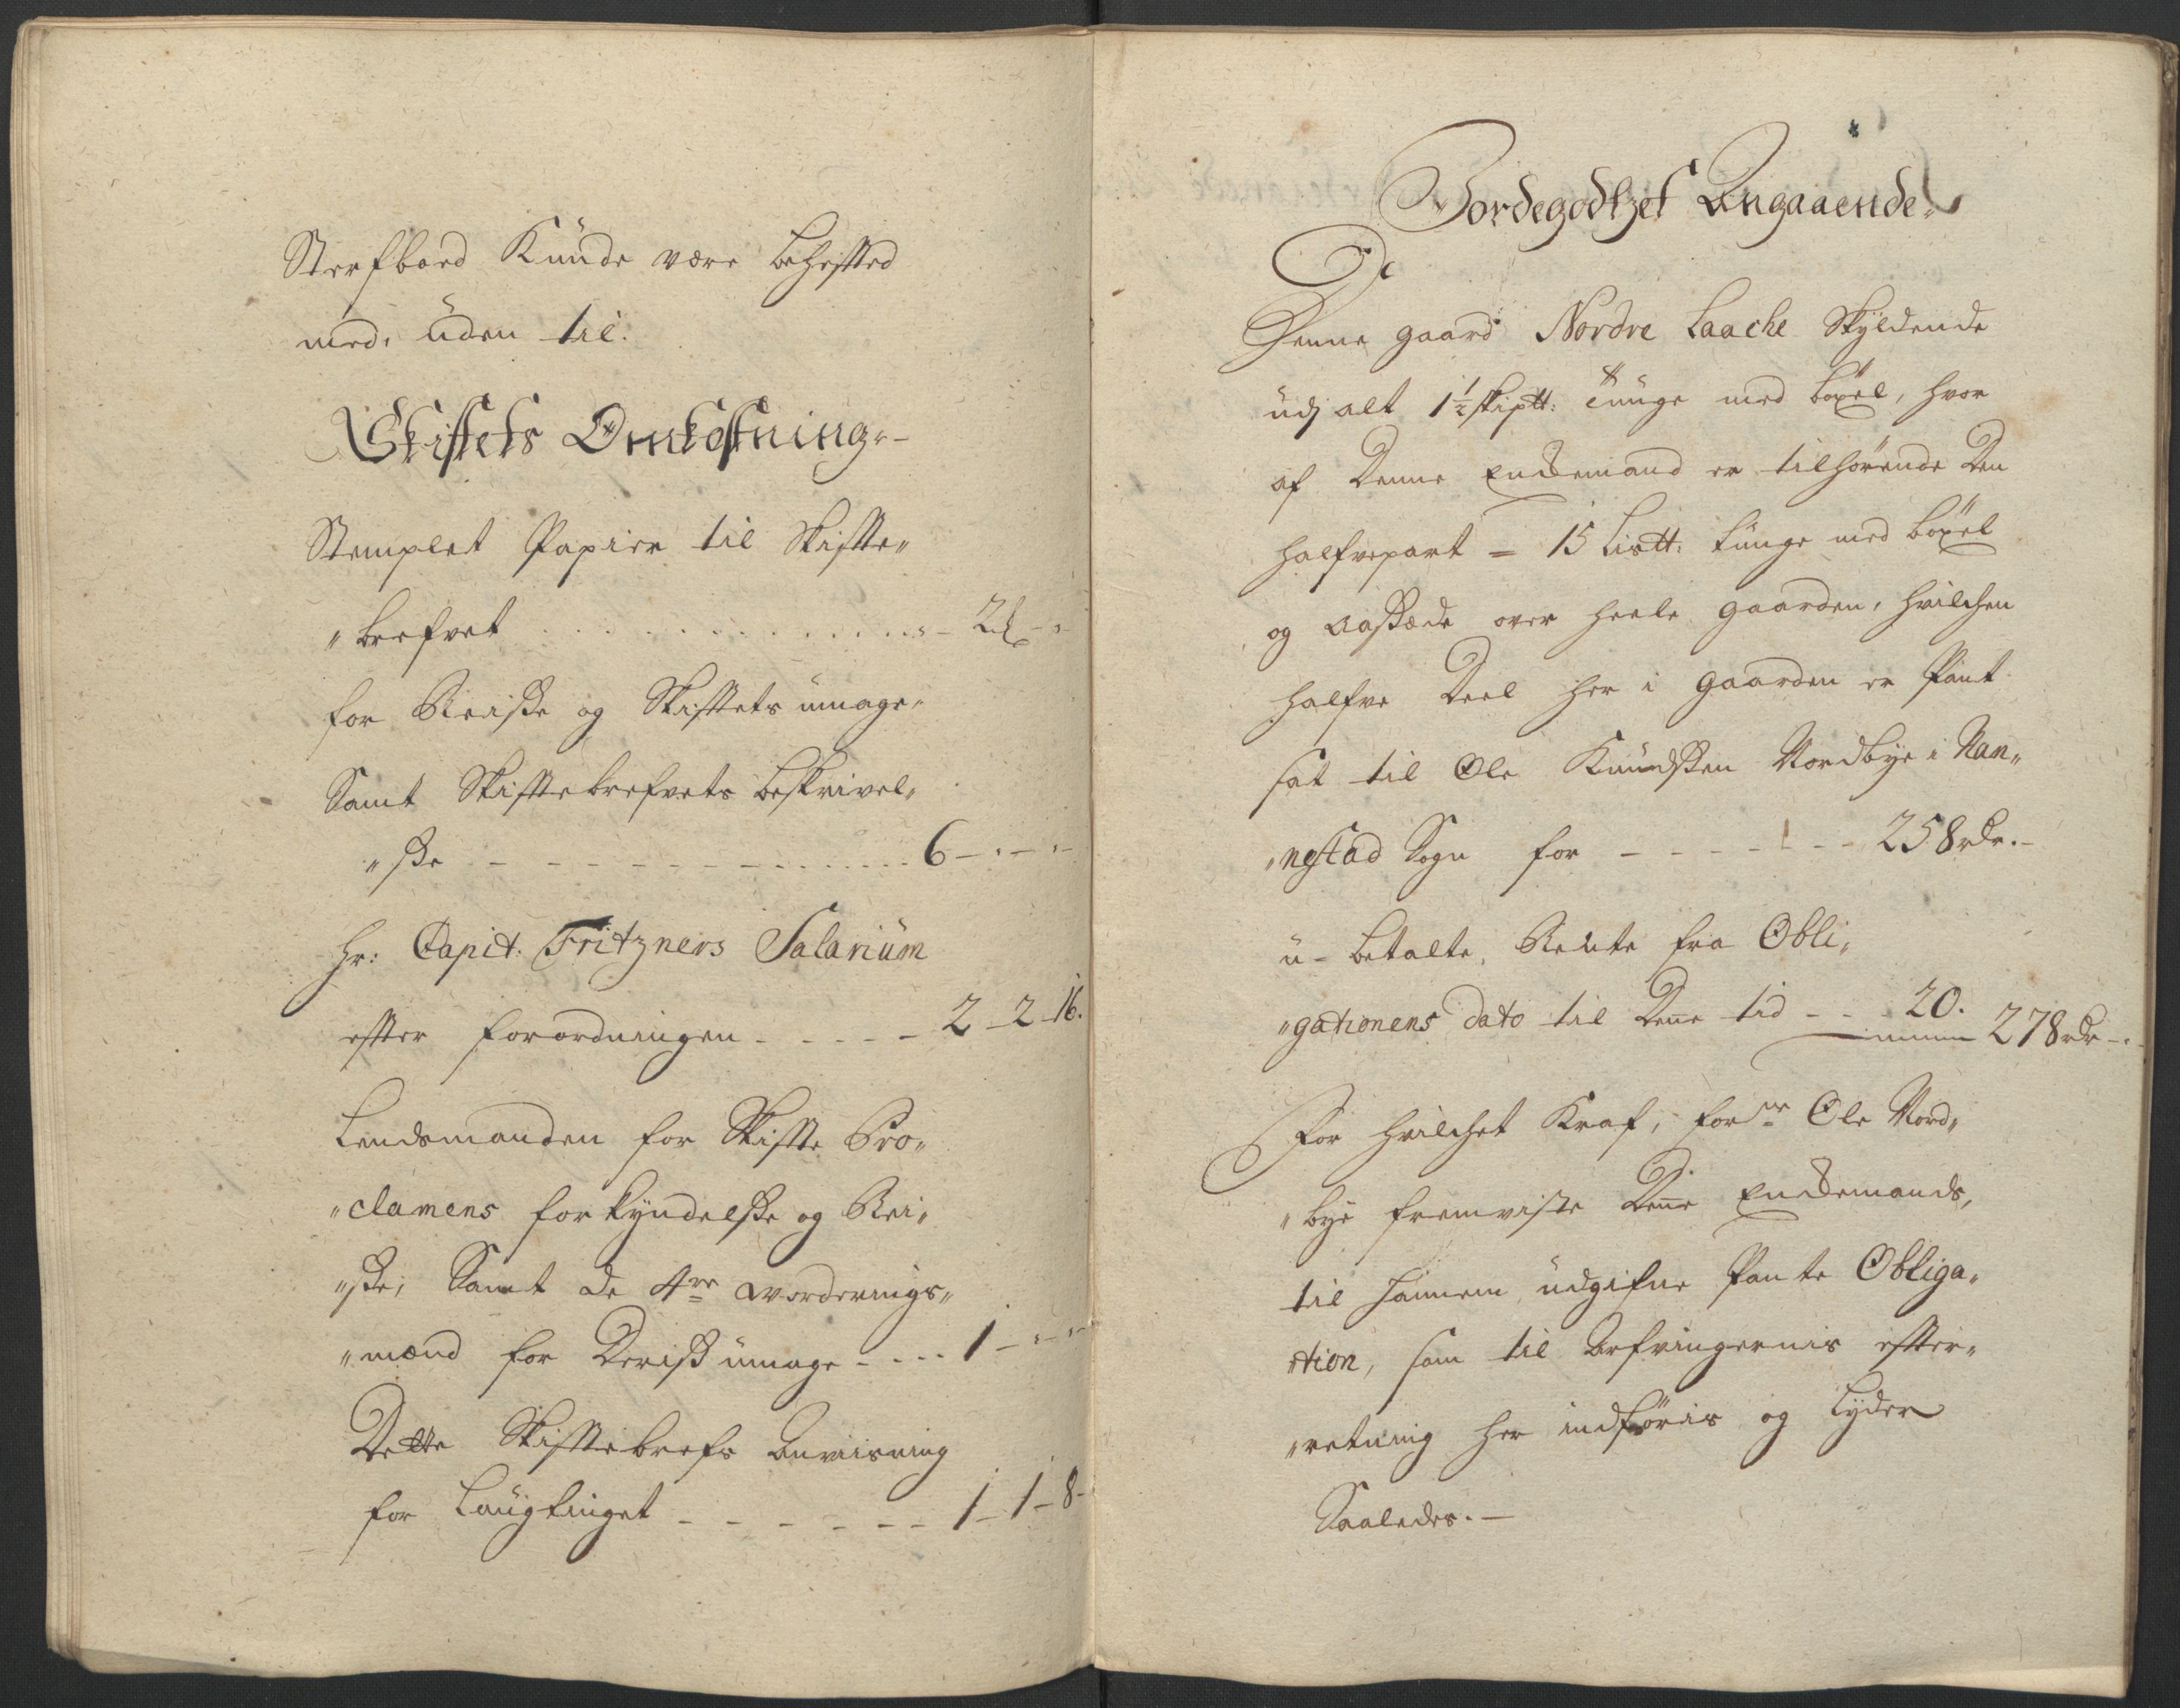 Sterfboed Kunde være behefted
med, uden til.
Skiftets Omkostning:-
Stemplet Papier til Skifte„
„brefvet . . . . . . . . . . . . . - 2rdr - -
for Reiße og Skiftets umage„
Samt Skiftebrefvets beskrivel„
„ße - - - - - - - - - - - . . . . 6 - „ - „
Hr: Capit: Fritzners Salarium
efter forordningen - - - - - 2 - 2 - 16.
Lendsmanden for Skifte Pro„
„clamens forkyndelße og Rei„
„ße, Samt de 4re worderings„
„mænd for Deriß umage - - - - 1 - „ - „
Dette Skiftebrefs Anviisning
for Laugtinget - - - - - - - 1 - 1 - 8 -
Jordegodtzet Angaaende„
Denne gaard Nordre Laache Skyldende
udj alt 1½ skiptt: tunge med böxel, hvor
af Denne Enckemand er tilhörende Den
halfvepart = 15 Listt: tunge med böxel
og aaßæde over heele gaarden, hvilchen
halfve Deel her i gaarden er Pant
sat til Ole Knudßen Nordbye i Nan„
„nestad Sogn for - - - - - - - 258rdr. -
u-betalte Rente fra Obli„
„gationens dato til Den̅e tid - - - 20.
278rdr - .
For hvilchet Kraf, forne Ole Nord„
„bye fremviste Den̅e Enckemands,
til hannem udgifne Pante Obliga„
„tion, som til Arfvingernis efter„
„retning her indföris og Lyder
Saaledes. -